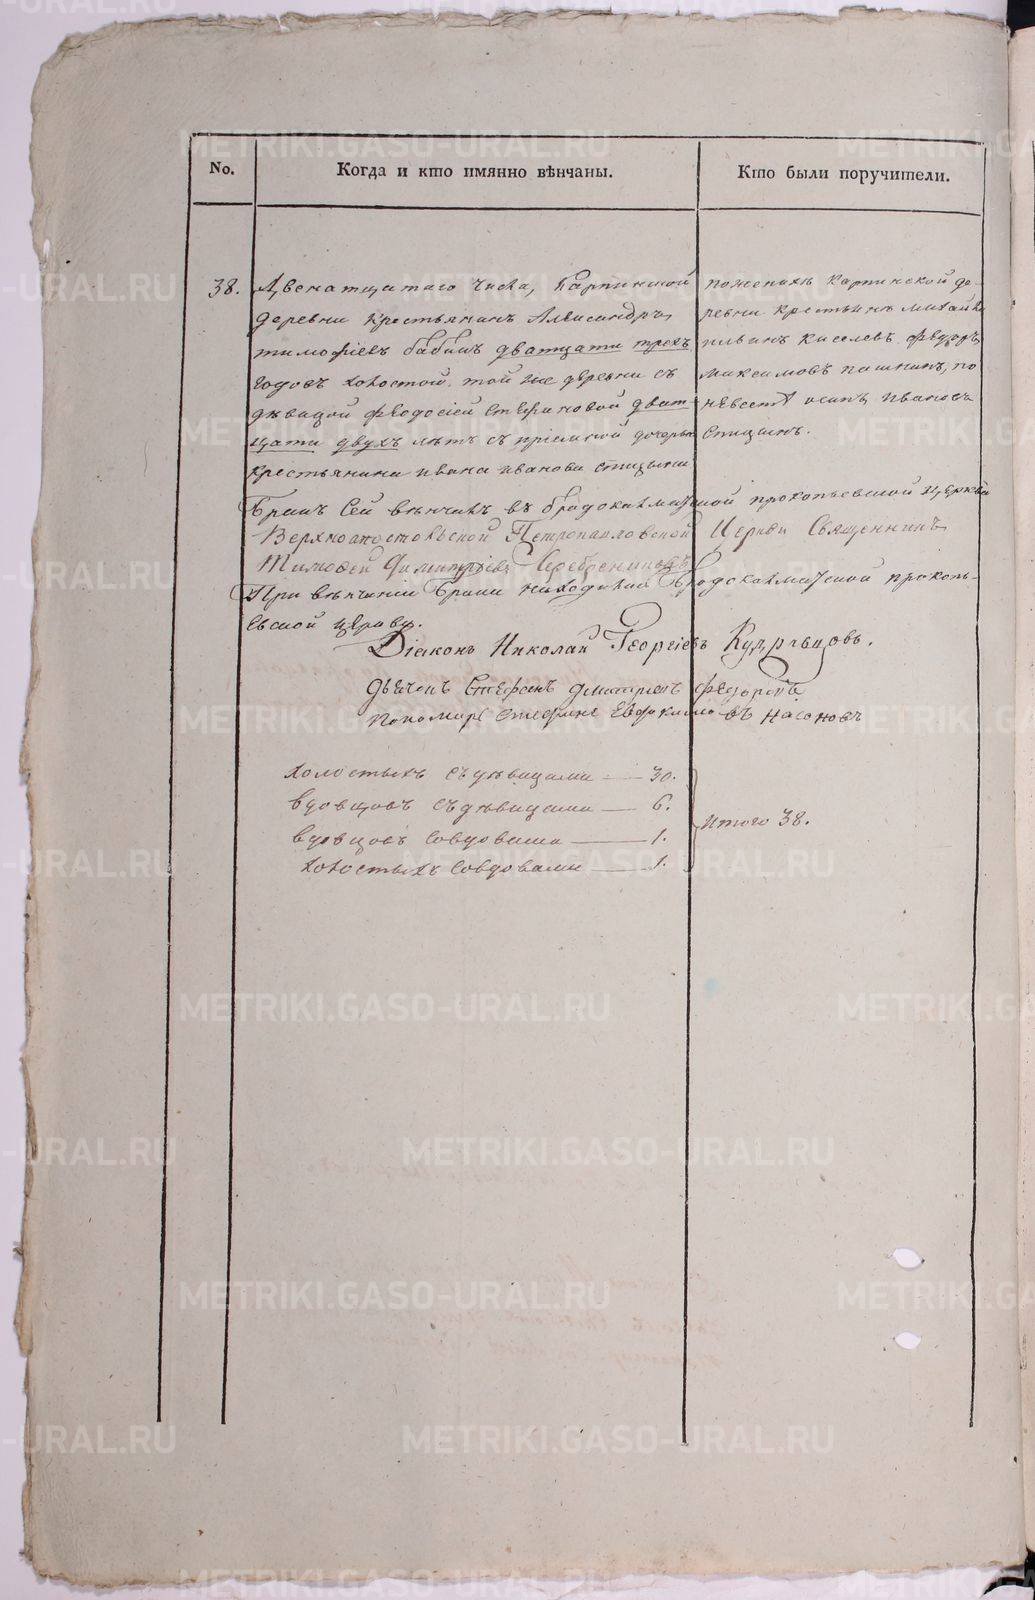 No. Когда и кто имянно вѣнчаны. Кто были поручители.
38. Двенатцатаго числа, Карпинской
деревни крестьянинъ Александръ
тимофѣевъ бабинъ дватцати трехъ
годовъ холостой, той же деревни съ
дѣвицой феодосіей стефановой дват-
цати двухъ лѣтъ съ пріемной дочерью
крестьянина ивана иванова спицына
пожениху Карпинской де-
ревни крестьянъ михайла
ильинъ киселевъ, федоръ
максимовъ пашнинъ, по
невестѣ осипъ ивановъ
спицынъ.
Бракъ сей вѣнчалъ въ бродокалмацкой прокопьевской церкви
Верхноапостольской Петропавловской Церкви Священникъ
Тимофей Димитріевъ Серебренниковъ
При вѣнчаніи брака находились Бродокалмацкой прокопь-
евской церкви.
Діаконъ Николай Георгіевъ Кудрявцовъ.
дьячокъ Стефанъ димитріевъ федоровъ
пономарь стефанъ Евдокимовъ насоновъ
холостыхъ съ дѣвицами — 30.
вдовцовъ съ дѣвицами — 6.
вдовцовъ совдовами — 1.
холостыхъ совдовами — 1.
итого 38.
METRIKI.GASO-URAL.RU